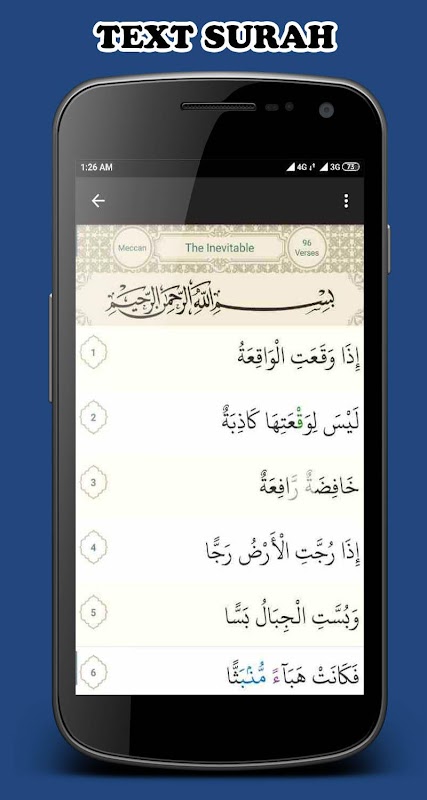 TEXT SURAH
1:26 AM 4G 3G 73
Meccan The Inevitable 96 Verses
بِسْمِ اللَّهِ الرَّحْمَنِ الرَّحِيمِ
1 إِذَا وَقَعَتِ الْوَاقِعَةُ
2 لَيْسَ لِوَقْعَتِهَا كَاذِبَةٌ
3 خَافِضَةٌ رَّافِعَةٌ
4 إِذَا رُجَّتِ الْأَرْضُ رَجًّا
5 وَبُسَّتِ الْجِبَالُ بَسًّا
6 فَكَانَتْ هَبَآءً مُّنۢبَثًّا